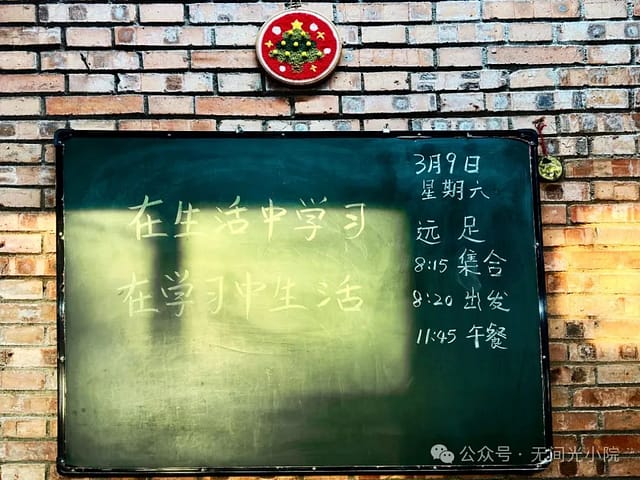 在生活中学习
在学习中生活
3月9日
星期六
远足
8:15 集合
8:20 出发
11:45 午餐
公众号·无间光小院